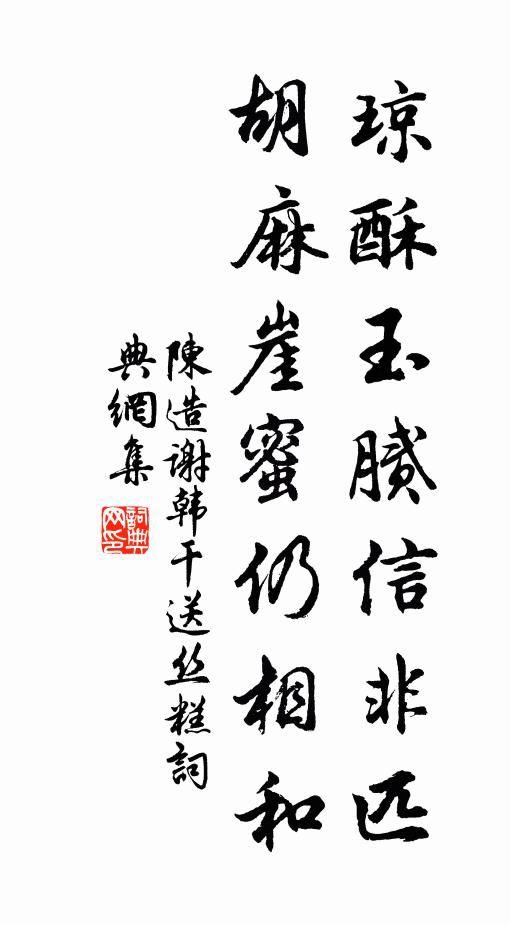 琼酥玉膩信非匹
胡麻崖蜜仍相和
陳造謝韩干送丝糕詞
典網集
詞典
网印